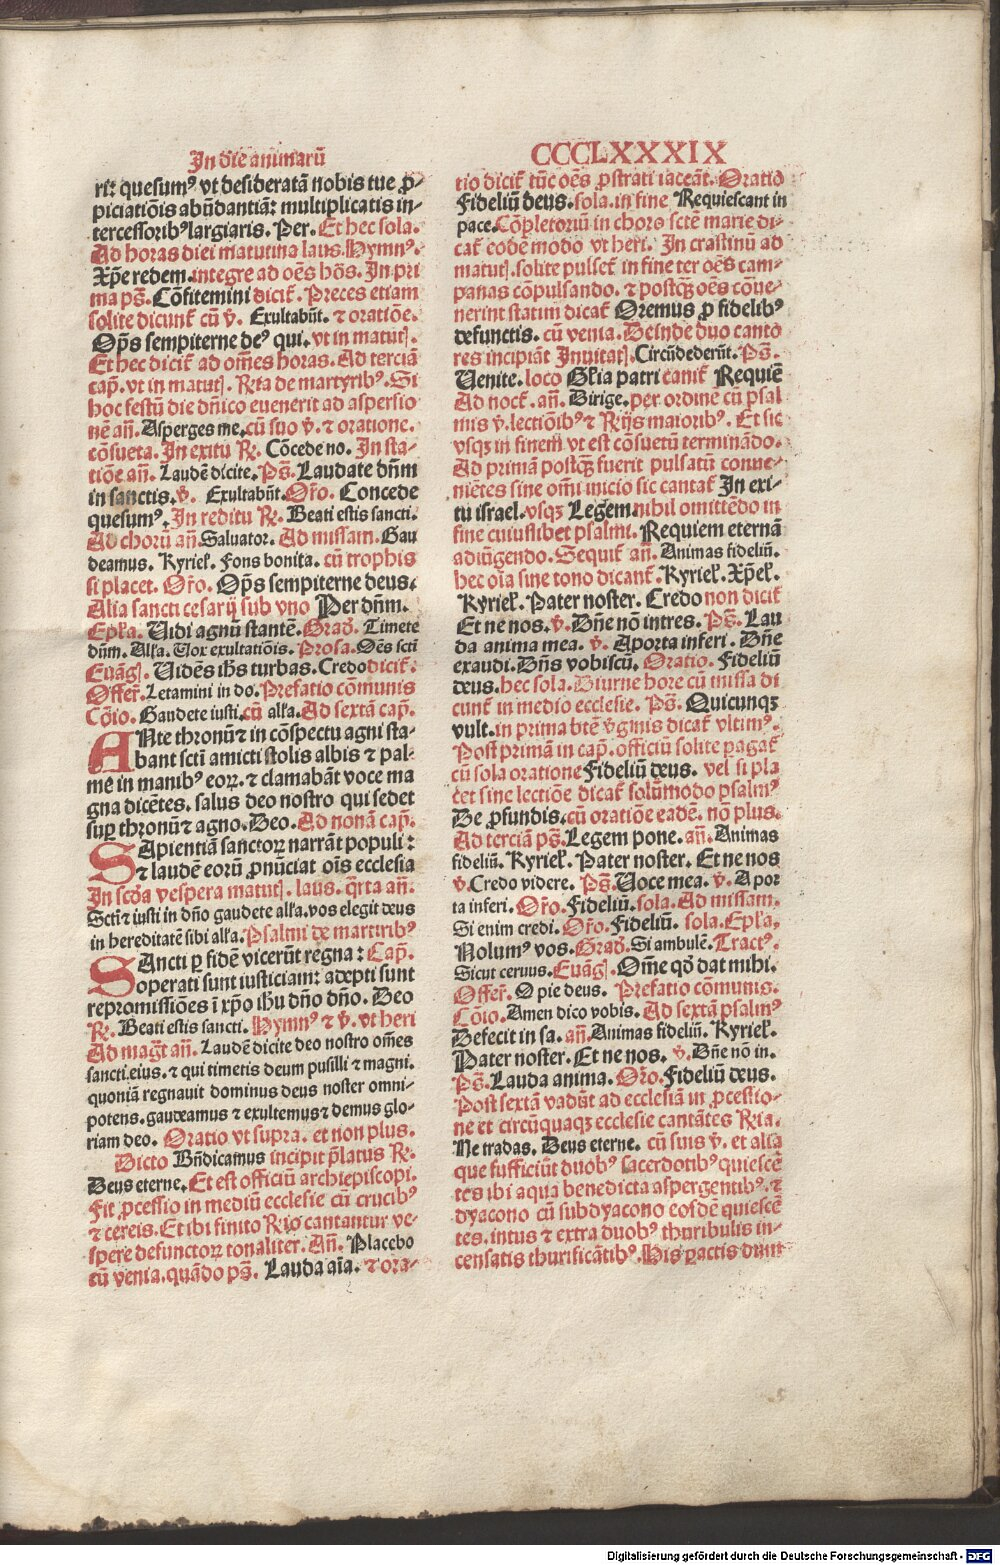 In die animarū
riꝛ quesumꝰ vt desideratā nobis tue ꝓ-
piciatiōis abūdantiāꝛ multiplicatis in-
tercessoribꝰ largiaris. Per. Et hec sola.
Ad horas diei matutina laus. Hymnꝰ.
Xp̄e redem. integre ad oēs hōs. In pri
ma ps̄. Cōfitemini dicit̄. Preces etiam
solite dicunt̄ cū v̄. Exultabūt. ⁊ oratiōe.
Op̄s sempiterne deꝰ qui. vt in matut̄.
Et hec dicit̄ ad om̄es horas. Ad terciā
cap̄. vt in matut̄. Rr̄ia de martyribꝰ. Si
hoc festū die dn̄ico euenerit ad aspersio
nē an̄. Asperges me. cū suo v̄. ⁊ oratione.
cōsueta. In exitu R̄. Cōcede no. In sta-
tiōe an̄. Laudē dicite. Ps̄. Laudate dn̄m
in sanctis. v̄. Exultabūt. Or̄o. Concede
quesumꝰ. In reditu R̄. Beati estis sancti.
Ad chorū an̄. Saluator. Ad missam. Gau
deamus. Kyriel̄. Fons bonita. cū trophis
si placet. Or̄o. Op̄s sempiterne deus.
Alia sancti cesarij sub vno Per dn̄m.
Epl̄a. Uidi agnū stantē. Grad̄. Timete
dn̄m. All̄a. Vox exultatiōis. Prosa. Oēs sct̄i
Euāḡ. Uidēs ih̄s turbas. Credo dicit̄.
Offer̄. Letamini in do. Prefatio cōmunis
Cōio. Gaudete iusti. cū all̄a. Ad sextā cap̄.
ANte thronū ⁊ in cōspectu agni sta-
bant scti amicti stolis albis ⁊ pal-
me in manibꝰ eoꝝ. ⁊ clamabāt voce ma
gna dicētes. salus deo nostro qui sedet
suꝑ thronū ⁊ agno. Deo. Ad nonā cap̄.
SApientiā sanctoꝝ narrāt populi ꝛ
⁊ laudē eorū ꝓnūciat oīs ecclesia
In scd̄a vespera matut̄. laus. qr̄ta an̄.
Sct̄i ⁊ iusti in dn̄o gaudete all̄a. vos elegit deus
in hereditatē sibi all̄a. Psalmi de martiribꝰ
SAncti ꝑ fidē vicerūt regna ꝛ Cap̄.
operati sunt iusticiamꝛ adepti sunt
repromissiōes ī xp̄o ih̄u dn̄o dn̄o. Deo
R̄. Beati estis sancti. Hymnꝰ ⁊ v̄. vt heri
Ad maḡt an̄. Laudē dicite deo nostro om̄es
sancti eius. ⁊ qui timetis deum pusilli ⁊ magni.
quoniā regnauit dominus deus noster omni-
potens. gaudeamus ⁊ exultemus ⁊ demus glo-
riam deo. Oratio vt supra. et non plus.
Dicto Bn̄dicamus incipit p̄latus R̄.
Deus eterne. Et est officiū archiepiscopi.
Fit ꝓcessio in mediū ecclesie cū crucibꝰ
⁊ cereis. Et ibi finito Rr̄io cantantur ve-
spere defunctoꝝ tonaliter. An̄. Placebo
cū venia. quādo ps̄. Lauda aīa. ⁊ ora-
CCCLXXXIX
tio dicit̄ tūc oēs ꝓstrati iaceāt. Oratio
Fideliū deus. sola. in fine Requiescant in
pace. Cōpletoriū in choro scte marie di-
cat̄ eodē modo vt heri. In crastinū ad
matut̄. solite pulset̄ in fine ter oēs cam-
panas cōpulsando. ⁊ postqȝ oēs cōue-
nerint statim dicat̄ Oremus ꝓ fidelibꝰ
defunctis. cū venia. Deinde duo canto
res incipiāt Inuitat̄. Circūdederūt. Ps̄.
Uenite. loco Gl̄ia patri canit̄ Requiē
Ad noct̄. an̄. Dirige. per ordinē cū psal
mis v̄. lectiōibꝰ ⁊ Rr̄ijs maioribꝰ. Et sic
vsqȝ in finem vt est cōsuetū terminādo.
Ad primā postqȝ fuerit pulsatū conue-
niētes sine om̄i inicio sic cantat̄ In exi-
tu israel. vsqȝ Legem. nihil omittēdo in
fine cuiuslibet psalmi. Requiem eternā
adiūgendo. Sequit̄ an̄. Animas fideliū.
hec oīa sine tono dicant̄. Kyriel̄. Xp̄el̄.
Kyriel̄. Pater noster. Credo non dicit̄
Et ne nos. v̄. Dn̄e nō intres. Ps̄. Lau
da anima mea. v̄. Aporta inferi. Dn̄e
exaudi. Dn̄s vobiscū. Oratio. Fideliū
deus. hec sola. Diurne hore cū missa di
cunt̄ in medio ecclesie. Ps̄. Quicunqȝ
vult. in prima btē v̄gīnis dicat̄ vltimꝰ.
Post primā in cap̄. officiū solite ꝑagat̄
cū sola oratione Fideliū deus. vel si pla
cet sine lectiōe dicat̄ solūmodo psalmꝰ
De ꝓfundis. cū oratiōe eadē. nō plus.
Ad terciā ps̄. Legem pone. an̄. Animas
fideliū. Kyriel̄. Pater noster. Et ne nos
v̄. Credo videre. Ps̄. Uoce mea. v̄. A por
ta inferi. Or̄o. Fideliū. sola. Ad missam.
Si enim credi. Or̄o. Fideliū. sola. Epl̄a.
Nolumꝰ vos. Grad̄. Si ambulē. Tractꝰ.
Sicut ceruus. Euāḡ. Om̄e qd̄ dat mihi.
Offer̄. O pie deus. Prefatio cōmunis.
Cōio. Amen dico vobis. Ad sextā psalmꝰ
Defecit in sa. an̄. Animas fideliū. Kyriel̄.
Pater noster. Et ne nos. v̄. Dn̄e nō in.
Ps̄. Lauda anima. Or̄o. Fideliū deus.
Post sextā vadūt ad ecclesiā in ꝓcessio-
ne et circūquaqȝ ecclesie cantātes Rr̄ia.
Ne tradas. Deus eterne. cū suis v̄. et alia
que sufficiūt duobꝰ sacerdotibꝰ quiescē
tes ibi aqua benedicta aspergentibꝰ. ⁊
dyacono cū subdyacono eosdē quiescē
tes. intus ⁊ extra duobꝰ thuribulis in-
censatis thurificātibꝰ. His ꝑactis dum
Digitalisierung gefördert durch die Deutsche Forschungsgemeinschaft - DFG